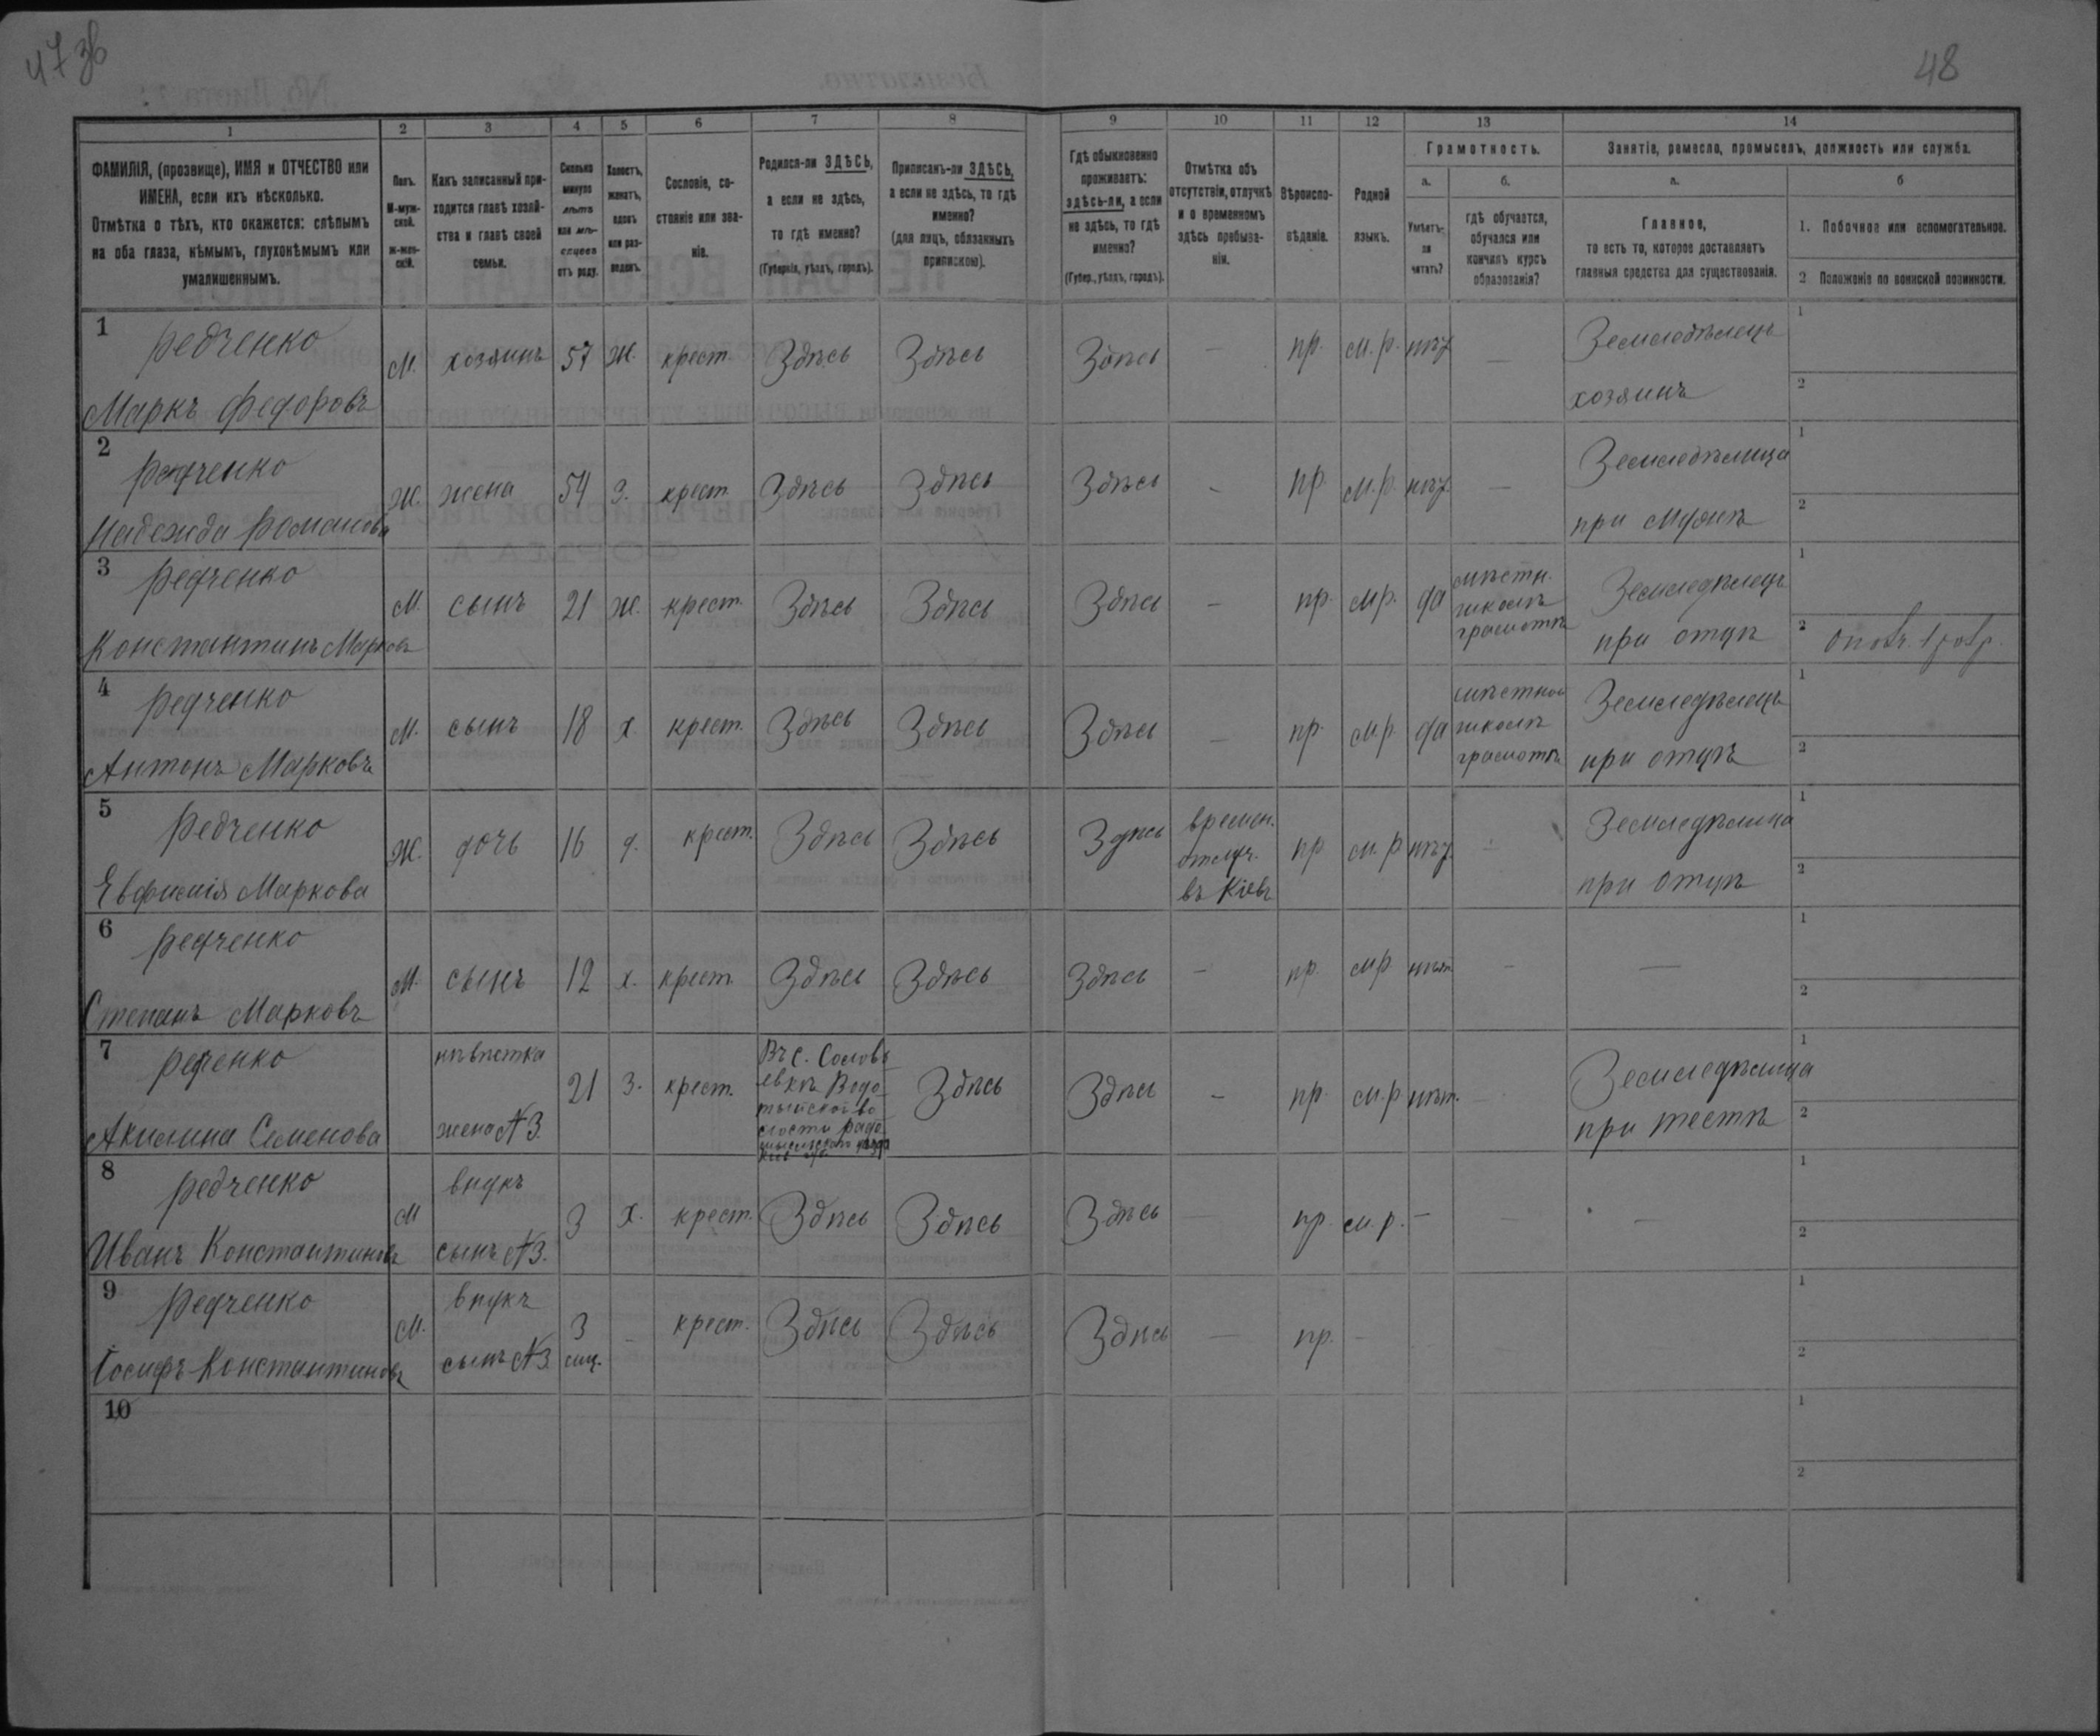 47 зв
48
1
2
3
4
5
6
7
8
9
10
11
12
13
14
ФАМИЛІЯ, (прозвище), ИМЯ и ОТЧЕСТВО или
ИМЕНА, если ихъ нѣсколько.
Отмѣтка о тѣхъ, кто окажется: слѣпымъ
на оба глаза, нѣмымъ, глухонѣмымъ или
умалишеннымъ.
Полъ.
М-муж-
ской.
Ж-жен-
скій.
Какъ записанный при-
ходится главѣ хозяй-
ства и главѣ своей
семьи.
Сколько
минуло
лѣтъ
или мѣ-
сяцевъ
отъ роду.
Холостъ,
женатъ,
вдовъ
или раз-
веденъ.
Сословіе, со-
стояніе или зва-
ніе.
Родился-ли ЗДѢСЬ,
а если не здѣсь,
то гдѣ именно?
(Губернія, уѣздъ, городъ).
Приписанъ-ли ЗДѢСЬ,
а если не здѣсь, то гдѣ
именно?
(для лицъ, обязанныхъ
припискою).
Гдѣ обыкновенно
проживаетъ:
здѣсь-ли, а если
не здѣсь, то гдѣ
именно?
(Губер., уѣздъ, городъ).
Отмѣтка объ
отсутствіи, отлучкѣ
и о временномъ
здѣсь пребыва-
ніи.
Вѣроиспо-
вѣданіе.
Родной
языкъ.
Грамотность.
а.
Умѣетъ-
ли
читать?
б.
гдѣ обучается,
обучался или
кончилъ курсъ
образованія?
Занятіе, ремесло, промыселъ, должность или служба.
а.
Главное,
то есть то, которое доставляетъ
главныя средства для существованія.
б
1. Побочное или вспомогательное.
2 Положеніе по воинской повинности.
1
Редченко
Маркъ Федоровъ
М. хозяинъ 57 Ж. крест. Здѣсь Здѣсь Здѣсь — пр. м.р. нѣт —
Земледѣлецъ
хозяинъ
1
2
2
Редченко
Надежда Романова
Ж. жена 54 З. крест. Здѣсь Здѣсь Здѣсь - пр. м.р. нѣт. —
Земледѣлица
при мужѣ
1
2
3
Редченко
Константинъ Марковъ
М. сынъ 21 Ж. крест. Здѣсь Здѣсь Здѣсь - пр. м.р. да
мѣстн.
школѣ
грамоты
Земледѣлецъ
при отцѣ
1
2
4
Редченко
Антонъ Марковъ
М. сынъ 18 х. крест. Здѣсь Здѣсь Здѣсь — пр. м.р. да
мѣстной
школѣ
грамоты
Земледѣлецъ
при отцѣ
1
2
5
Редченко
Евфимія Маркова
Ж. дочь 16 д. крест. Здѣсь Здѣсь Здѣсь
времен.
отлуч.
въ Кіевъ
пр м.р нѣт. -
Земледѣлица
при отцѣ
1
2
6
Редченко
Степанъ Марковъ
М. сынъ 12 х. крест. Здѣсь Здѣсь Здѣсь - пр. м.р. нѣт - —
1
2
7
Редченко
Акилина Семенова
нѣвѣстка
жена №3.
21 З. крест.
Въ с. Соловь
евкѣ Водо
тыйской во
лости Радо
мысльскаго уѣзда
Кіев губ
Здѣсь Здѣсь - пр. м.р нѣт. -
Земледѣлица
при тестѣ
1
2
8
Редченко
Иванъ Константиновъ
М
внукъ
сынъ №3.
3 Х. крест. Здѣсь Здѣсь Здѣсь — пр. м.р. - - —
1
2
9
Редченко
Іосифъ Константиновъ
М.
внукъ
сынъ №3.
3
мц.
- крест. Здѣсь Здѣсь Здѣсь — пр. -
1
2
10
1
2